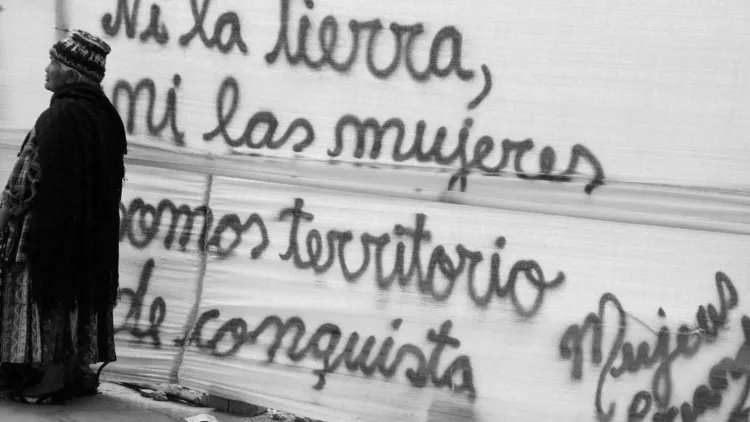 Ni la tierra,
ni las mujeres
somos territorio
de conquista
Mujeres